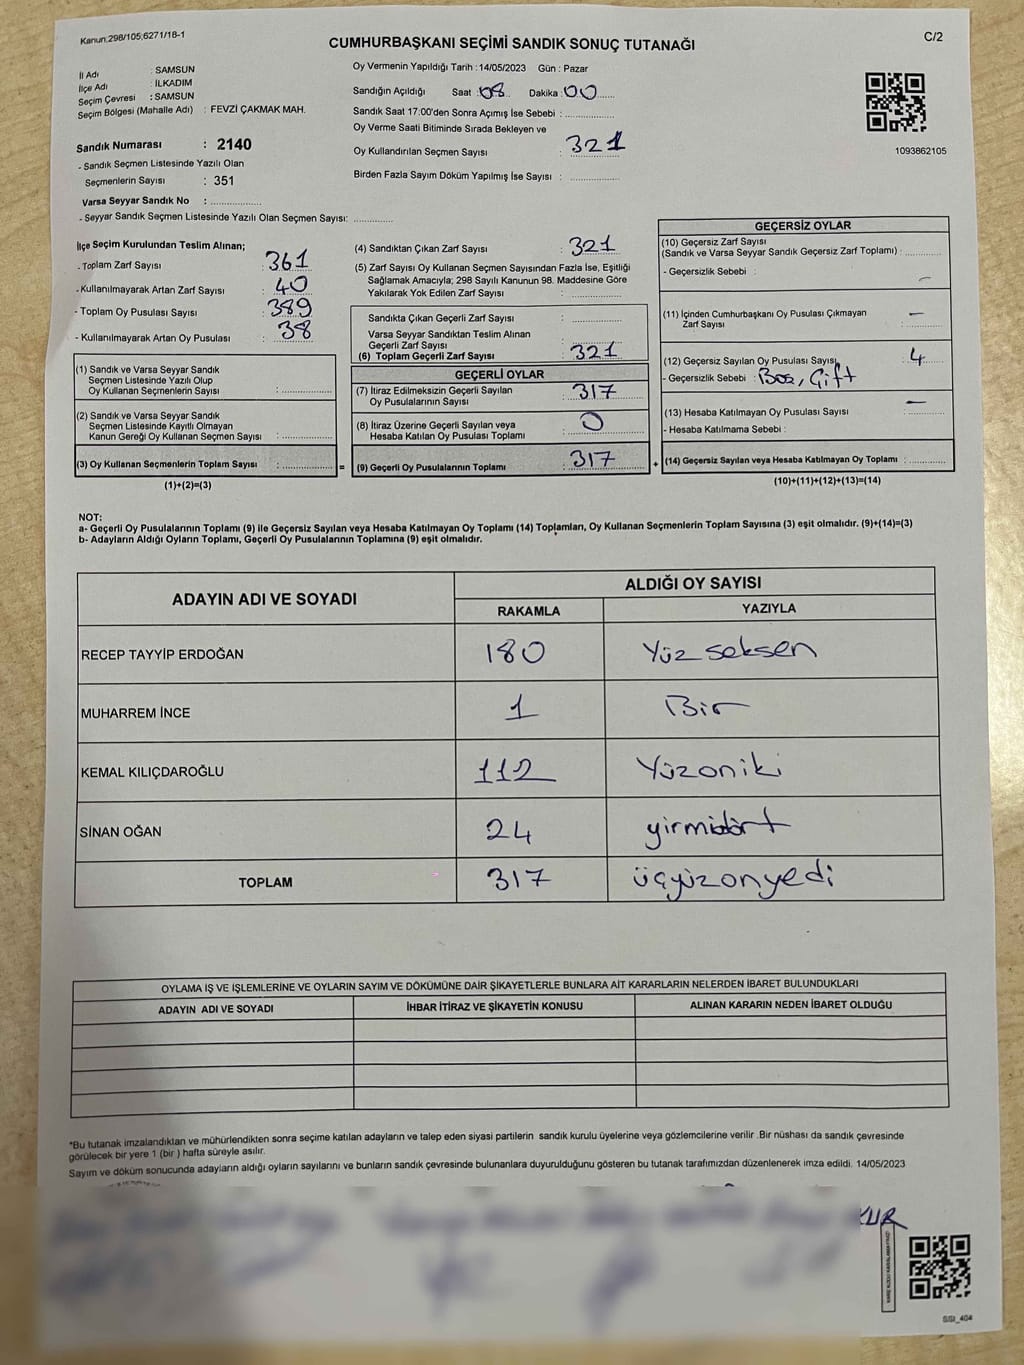 Kanun,298/105;6271/18-1
CUMHURBAŞKANI SEÇİMİ SANDIK SONUÇ TUTANAĞI
C/2
İl Adı : SAMSUN
İlçe Adı : İLKADIM
Seçim Çevresi : SAMSUN
Seçim Bölgesi (Mahalle Adı) : FEVZİ ÇAKMAK MAH.
Sandık Numarası : 2140
- Sandık Seçmen Listesinde Yazılı Olan
Seçmenlerin Sayısı : 351
Varsa Seyyar Sandık No :
- Seyyar Sandık Seçmen Listesinde Yazılı Olan Seçmen Sayısı:
Oy Vermenin Yapıldığı Tarih : 14/05/2023 Gün : Pazar
Sandığın Açıldığı Saat : 08 Dakika : 00
Sandık Saat 17:00'den Sonra Açımış İse Sebebi :
Oy Verme Saati Bitiminde Sırada Bekleyen ve
Oy Kullandırılan Seçmen Sayısı : 321
Birden Fazla Sayım Döküm Yapılmış İse Sayısı :
1093862105
İlçe Seçim Kurulundan Teslim Alınan;
- Toplam Zarf Sayısı : 361
- Kullanılmayarak Artan Zarf Sayısı : 40
- Toplam Oy Pusulası Sayısı : 389
- Kullanılmayarak Artan Oy Pusulası : 38
(1) Sandık ve Varsa Seyyar Sandık
Seçmen Listesinde Yazılı Olup
Oy Kullanan Seçmenlerin Sayısı :
(2) Sandık ve Varsa Seyyar Sandık
Seçmen Listesinde Kayıtlı Olmayan
Kanun Gereği Oy Kullanan Seçmen Sayısı :
(3) Oy Kullanan Seçmenlerin Toplam Sayısı : =
(1)+(2)=(3)
(4) Sandıktan Çıkan Zarf Sayısı : 321
(5) Zarf Sayısı Oy Kullanan Seçmen Sayısından Fazla İse, Eşitliği
Sağlamak Amacıyla; 298 Sayılı Kanunun 98. Maddesine Göre
Yakılarak Yok Edilen Zarf Sayısı :
Sandıkta Çıkan Geçerli Zarf Sayısı :
Varsa Seyyar Sandıktan Teslim Alınan
Geçerli Zarf Sayısı :
(6) Toplam Geçerli Zarf Sayısı : 321
GEÇERLİ OYLAR
(7) İtiraz Edilmeksizin Geçerli Sayılan
Oy Pusulalarının Sayısı : 317
(8) İtiraz Üzerine Geçerli Sayılan veya
Hesaba Katılan Oy Pusulası Toplamı : 0
(9) Geçerli Oy Pusulalarının Toplamı : 317 +
GEÇERSİZ OYLAR
(10) Geçersiz Zarf Sayısı
(Sandık ve Varsa Seyyar Sandık Geçersiz Zarf Toplamı) :
- Geçersizlik Sebebi : –
(11) İçinden Cumhurbaşkanı Oy Pusulası Çıkmayan
Zarf Sayısı : –
(12) Geçersiz Sayılan Oy Pusulası Sayısı : 4
- Geçersizlik Sebebi : Boş, Çift
(13) Hesaba Katılmayan Oy Pusulası Sayısı : –
- Hesaba Katılmama Sebebi :
(14) Geçersiz Sayılan veya Hesaba Katılmayan Oy Toplamı :
(10)+(11)+(12)+(13)=(14)
NOT:
a- Geçerli Oy Pusulalarının Toplamı (9) ile Geçersiz Sayılan veya Hesaba Katılmayan Oy Toplamı (14) Toplamları, Oy Kullanan Seçmenlerin Toplam Sayısına (3) eşit olmalıdır. (9)+(14)=(3)
b- Adayların Aldığı Oyların Toplamı, Geçerli Oy Pusulalarının Toplamına (9) eşit olmalıdır.
ADAYIN ADI VE SOYADI
ALDIĞI OY SAYISI
RAKAMLA YAZIYLA
RECEP TAYYİP ERDOĞAN 180 Yüz seksen
MUHARREM İNCE 1 Bir
KEMAL KILIÇDAROĞLU 112 Yüzoniki
SİNAN OĞAN 24 yirmidört
TOPLAM 317 üçyüzonyedi
OYLAMA İŞ VE İŞLEMLERİNE VE OYLARIN SAYIM VE DÖKÜMÜNE DAİR ŞİKAYETLERLE BUNLARA AİT KARARLARIN NELERDEN İBARET BULUNDUKLARI
ADAYIN ADI VE SOYADI İHBAR İTİRAZ VE ŞİKAYETİN KONUSU ALINAN KARARIN NEDEN İBARET OLDUĞU
*Bu tutanak imzalandıktan ve mühürlendikten sonra seçime katılan adayların ve talep eden siyasi partilerin sandık kurulu üyelerine veya gözlemcilerine verilir .Bir nüshası da sandık çevresinde
görülecek bir yere 1 (bir ) hafta süreyle asılır.
Sayım ve döküm sonucunda adayların aldığı oyların sayılarını ve bunların sandık çevresinde bulunanlara duyurulduğunu gösteren bu tutanak tarafımızdan düzenlenerek imza edildi. 14/05/2023
KARE KODU KARALAMAYINIZ!
SSI_404